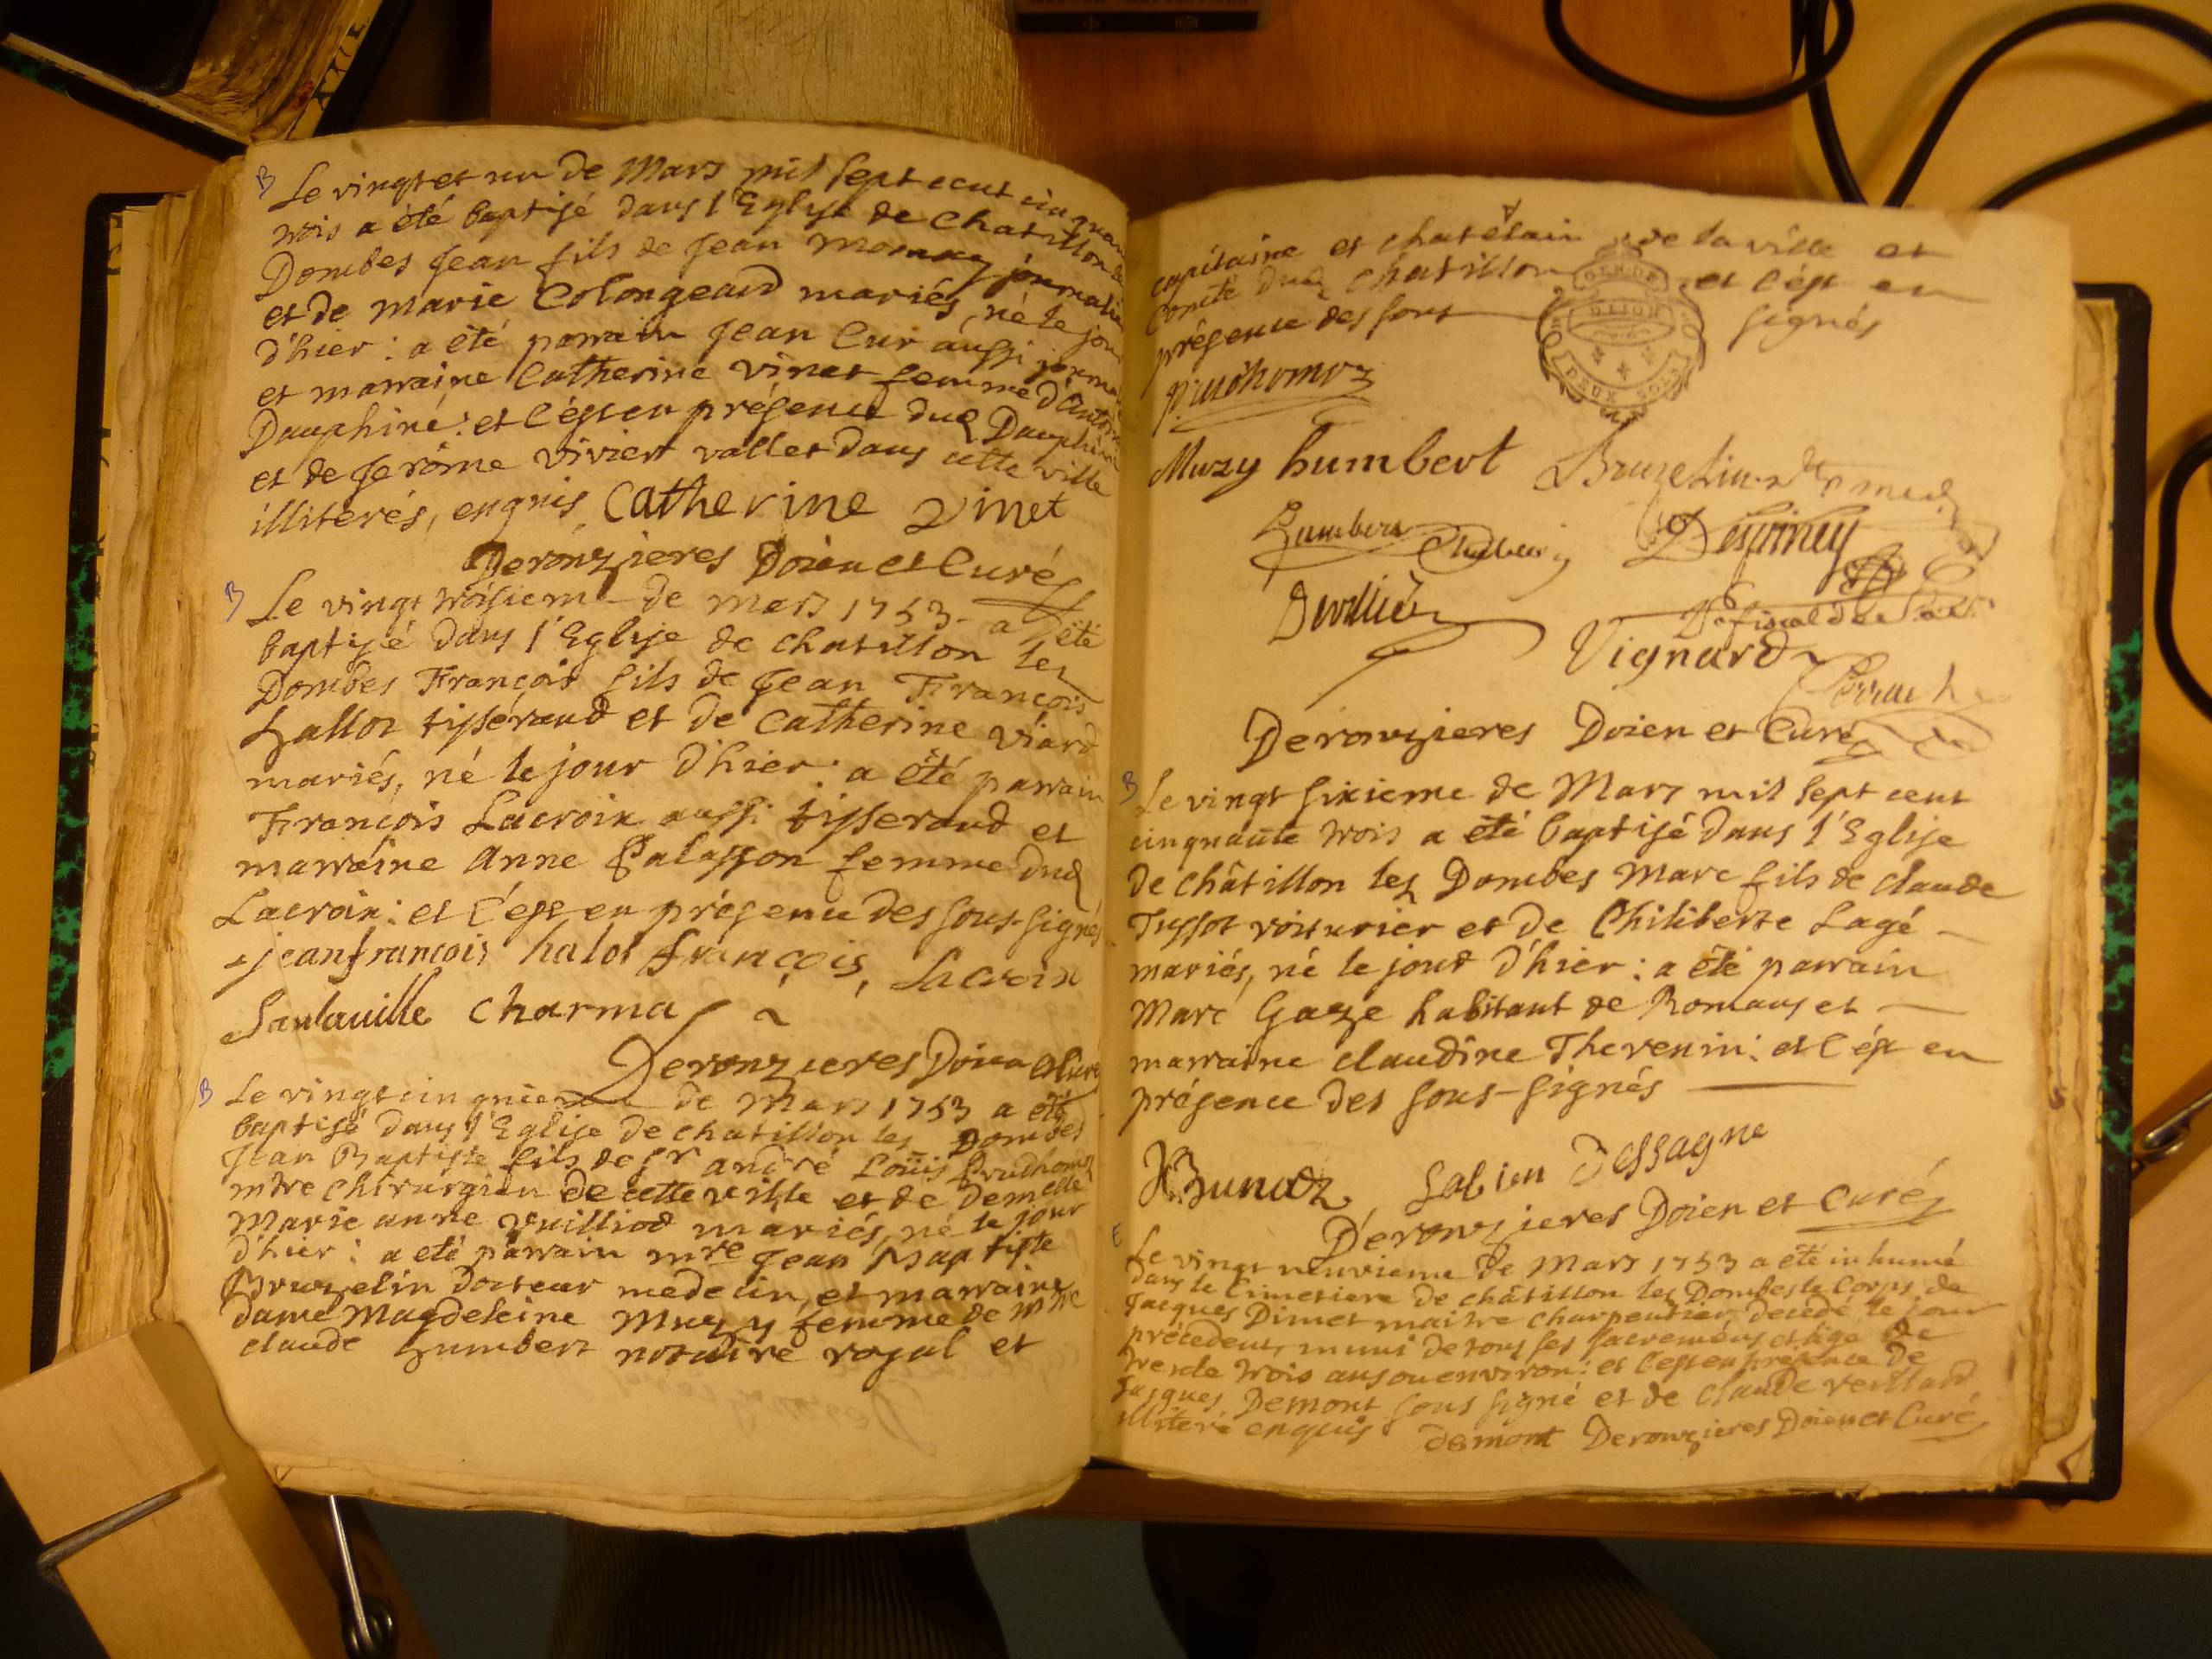 B Le vingt et un de Mars mil sept cent cinquan
trois a été baptisé dans l'Eglise de Chatillon les
Dombes Jean fils de Jean journalier
et de Marie Colongeard mariés, né le jour
d'hier : a été parrain Jean Cur aussi journa
et marraine Catherine Vinet femme d'Antoi
Dauphiné : et c'est en présence dud Dauphiné
et de Jerôme Vivient vallet dans cette ville
illiterés, enquis Catherine Vinet
Deronzieres Doien et Curé
B Le vingt troisieme de Mars 1753 a été
baptisé dans l'Eglise de Chatillon les
Dombes François fils de Jean François
Hallot tisserand et de Catherine Viard
mariés, né le jour d'hier : a été parrain
François Lacroix aussi tisserand et
marraine Anne Palasson femme dud
Lacroix : et c'est en présence des sous-signés
jeanfrançois halot françois Lacroix
Charma
Deronzieres Doien et Curé
B Le vingt cinquieme de Mars 1753 a été
baptisé dans l'Eglise de Chatillon les Dombes
Jean Baptiste fils de Sr André Louis Prudhomme
mtre Chirurgien de cette ville et de Demelle
Marie Anne Vuilliod mariés, né le jour
d'hier : a eté parrain mre Jean Baptiste
Bruzelin docteur medecin, et marraine
dame Magdeleine Muzy femme de mtre
Claude Humbert notaire royal et
capitaine et chatelain de la ville et
Comté dud Châtillon et c'est en
présence des sous signés
GEN. DE
DIJON
DEUX SOLS
Prudhomme
Muzy humbert Bruzelin
Humbert Despiney
Vignard
Perruche
Deronzieres Doien et Curé
B Le vingt sixieme de Mars mil sept cent
cinquante trois a été baptisé dans l'Eglise
de Châtillon les Dombes Marc fils de Claude
Tissot voiturier et de Philiberte Lagé
mariés, né le jour d'hier : a été parrain
Marc Gaze habitant de Romans et
marraine Claudine Thevenin : et c'est en
présence des sous-signés
Bunod Dessagne
Deronzieres Doien et Curé
E Le vingt neuvieme de Mars 1753 a été inhumé
dans le Cimetiere de châtillon les Dombes le Corps de
Jacques Dimet maitre charpentier decédé le jour
précedent, muni de tous ses sacremens et âgé de
trente trois ans ou environ : et c'est en présence de
Jacques Demont sous signé et de Claude
illiteré enquis demont Deronzieres Doien et Curé